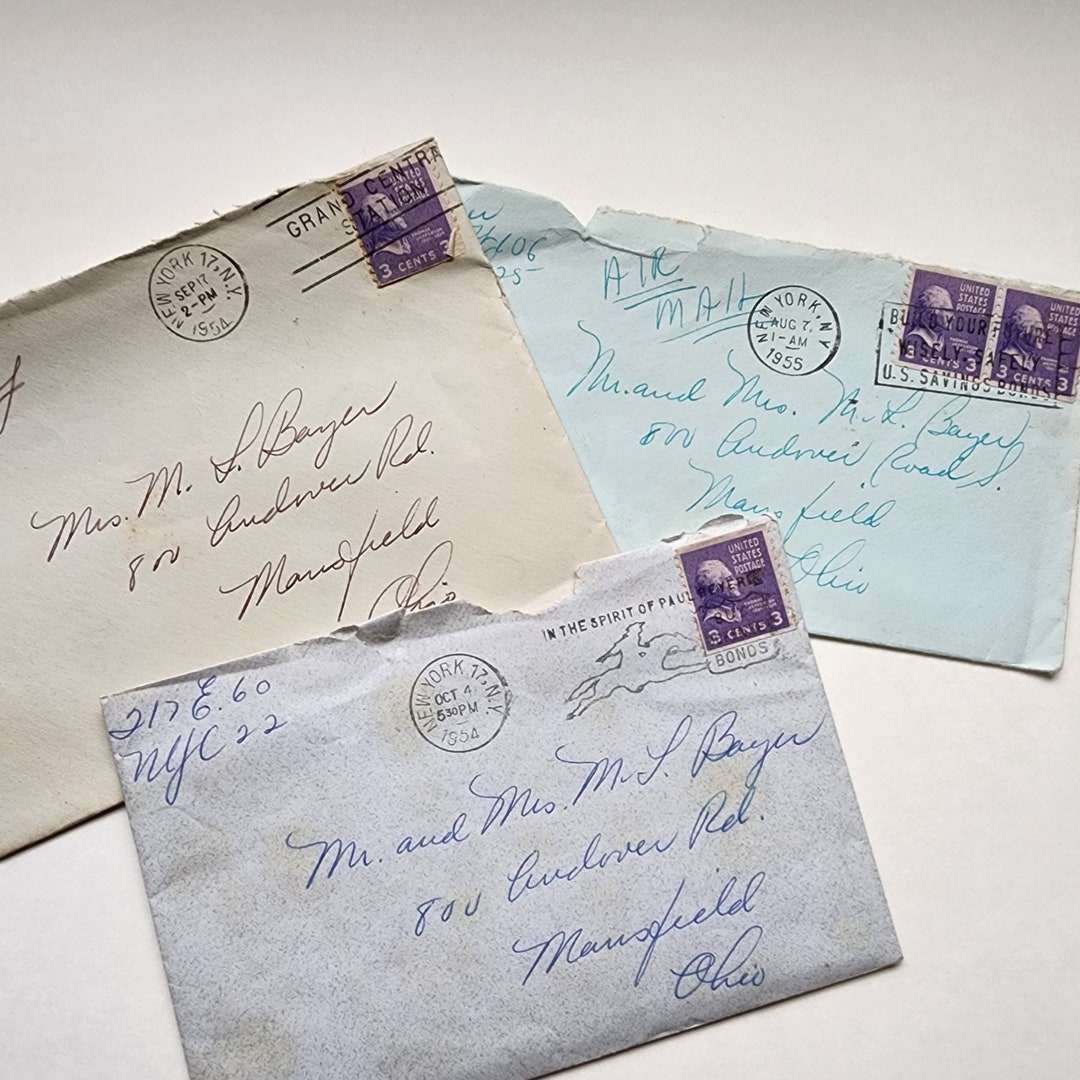 GRAND CENTRA
STATION
NEW YORK 17, N.Y.
SEP 17
2-PM
1954
UNITED
STATES
POSTAGE
THOMAS
JEFFERSON
3 CENTS 3
Mrs. M. L. Bayer
800 Andover Rd.
Mansfield
Ohio
AIR
MAIL
NEW YORK, N.Y.
AUG 7,
1-AM
1955
BUILD YOUR FUTURE
WISELY, SAFELY
U.S. SAVINGS BONDS
UNITED
STATES
POSTAGE
3 CENTS 3
UNITED
STATES
POSTAGE
3 CENTS 3
Mr. and Mrs. M. L. Bayer
800 Andover Road S.
Mansfield
Ohio
217 E. 60
NYC 22
NEW YORK 17, N.Y.
OCT 4
530 PM
1954
IN THE SPIRIT OF PAUL REVERE
BUY
BONDS
UNITED
STATES
POSTAGE
3 CENTS 3
Mr. and Mrs. M. L. Bayer
800 Andover Rd.
Mansfield
Ohio